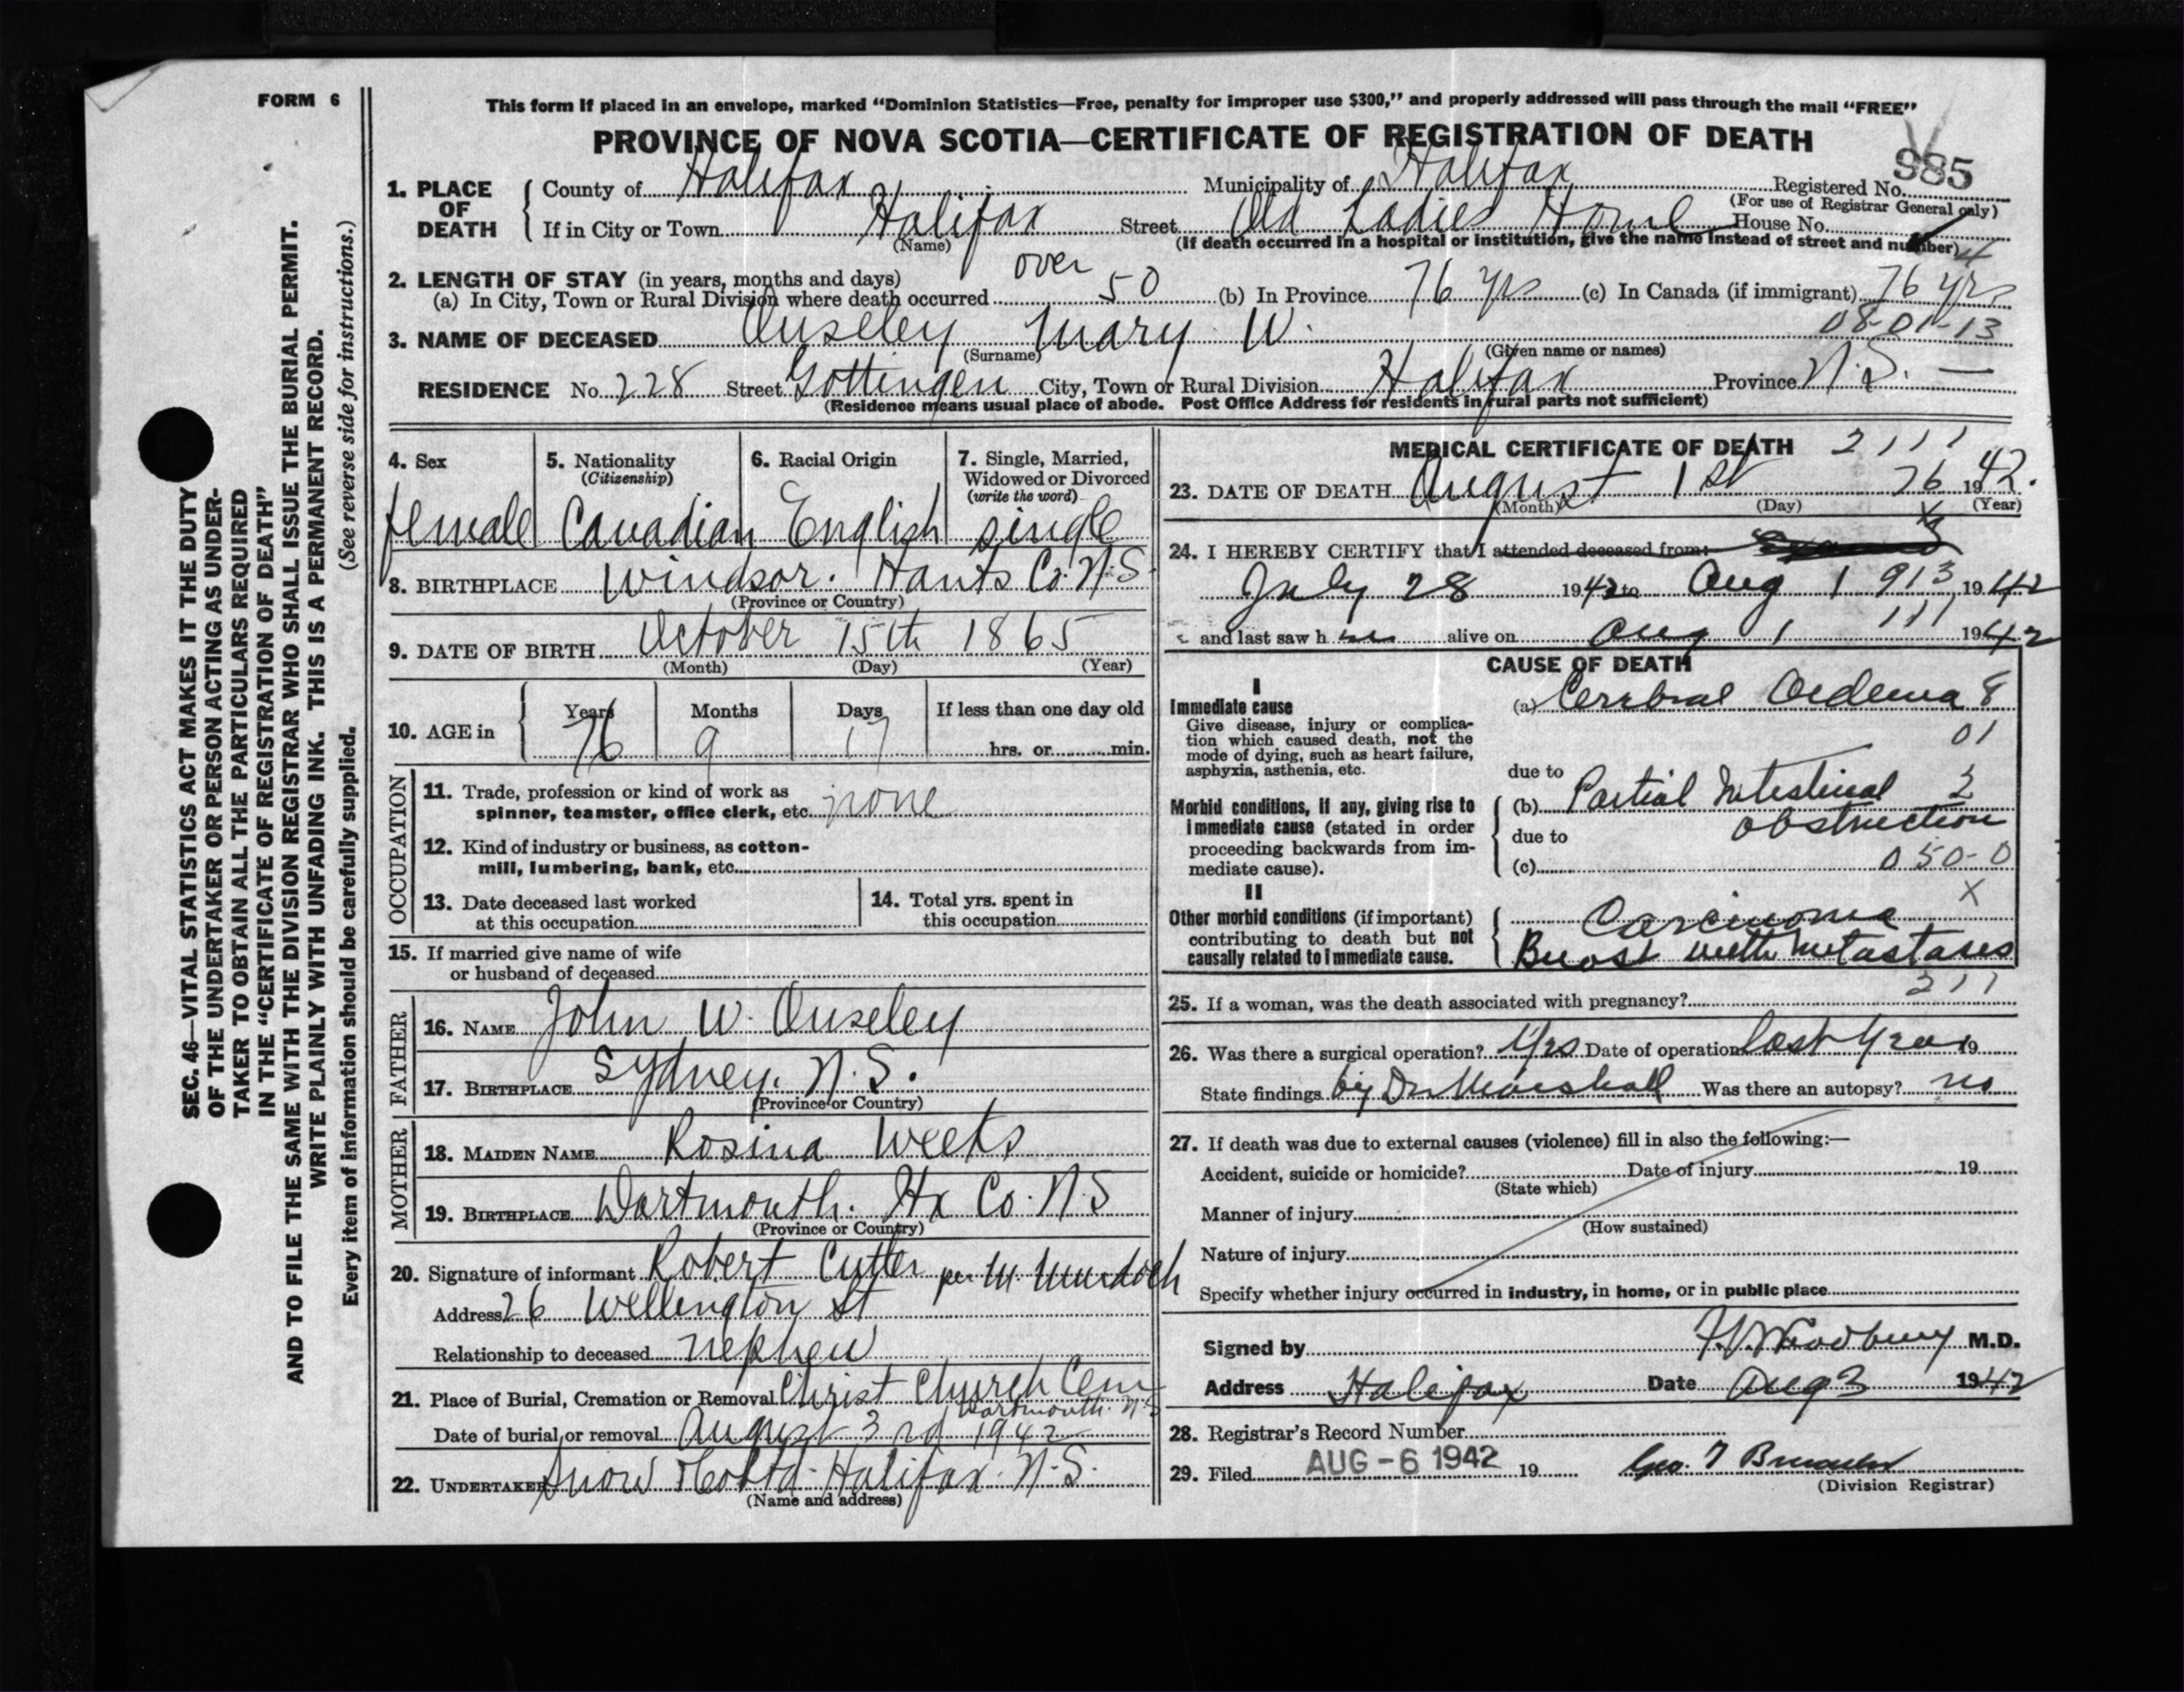 FORM 6
This form if placed in an envelope, marked "Dominion Statistics—Free, penalty for improper use $300," and properly addressed will pass through the mail "FREE"
PROVINCE OF NOVA SCOTIA—CERTIFICATE OF REGISTRATION OF DEATH
985
1. PLACE OF DEATH County of Halifax Municipality of Halifax Registered No.
(For use of Registrar General only)
If in City or Town Halifax Street Old Ladies Home House No.
(Name) (If death occurred in a hospital or institution, give the name instead of street and number)
2. LENGTH OF STAY (in years, months and days)
(a) In City, Town or Rural Division where death occurred over 50 (b) In Province 76 yrs (c) In Canada (if immigrant) 76 yrs
08-01-13
3. NAME OF DECEASED Ouseley Mary W.
(Surname) (Given name or names)
RESIDENCE No. 228 Street Gottingen City, Town or Rural Division Halifax Province N.S. —
(Residence means usual place of abode. Post Office Address for residents in rural parts not sufficient)
4. Sex 5. Nationality 6. Racial Origin 7. Single, Married,
(Citizenship) Widowed or Divorced
(write the word)
female Canadian English single
8. BIRTHPLACE Windsor. Hants Co. N.S.
(Province or Country)
9. DATE OF BIRTH October 15th 1865
(Month) (Day) (Year)
10. AGE in Years Months Days If less than one day old
76 9 17 hrs. or min.
OCCUPATION
11. Trade, profession or kind of work as
spinner, teamster, office clerk, etc. none
12. Kind of industry or business, as cotton-
mill, lumbering, bank, etc.
13. Date deceased last worked
at this occupation
14. Total yrs. spent in
this occupation
15. If married give name of wife
or husband of deceased
FATHER
16. NAME John W. Ouseley
17. BIRTHPLACE Sydney. N.S.
(Province or Country)
MOTHER
18. MAIDEN NAME Rosina Weeks
19. BIRTHPLACE Dartmouth. Hx Co. N.S
(Province or Country)
20. Signature of informant Robert Cutler per M. Murdoch
Address 26 Wellington St
Relationship to deceased nephew
21. Place of Burial, Cremation or Removal Christ Church Cem
Dartmouth. N.S
Date of burial or removal August 3rd 1942
22. UNDERTAKER Snow & Co Ltd. Halifax. N.S.
(Name and address)
MEDICAL CERTIFICATE OF DEATH 2111
23. DATE OF DEATH August 1st 76 1942.
(Month) (Day) (Year)
24. I HEREBY CERTIFY that I attended deceased from:
July 28 1942 to Aug 1 913 1942
111
and last saw h alive on Aug 1 1942
CAUSE OF DEATH
I
Immediate cause (a) Cerebral Oedema 8
Give disease, injury or complica-
tion which caused death, not the
mode of dying, such as heart failure,
asphyxia, asthenia, etc.
01
due to
Morbid conditions, if any, giving rise to
immediate cause (stated in order
proceeding backwards from im-
mediate cause).
(b) Partial Intestinal 2
obstruction
due to
(c) 050-0
II
X
Other morbid conditions (if important)
contributing to death but not
causally related to immediate cause.
Carcinoma
Breast with metastases
211
25. If a woman, was the death associated with pregnancy?
26. Was there a surgical operation? Yes Date of operation last year 19
State findings by Dr Marshall Was there an autopsy? no
27. If death was due to external causes (violence) fill in also the following:—
Accident, suicide or homicide? Date of injury 19
(State which)
Manner of injury
(How sustained)
Nature of injury
Specify whether injury occurred in industry, in home, or in public place
Signed by Woodbury M.D.
Address Halifax Date Aug 3 1942
28. Registrar's Record Number
29. Filed AUG - 6 1942 19 Geo.
(Division Registrar)
SEC. 46—VITAL STATISTICS ACT MAKES IT THE DUTY
OF THE UNDERTAKER OR PERSON ACTING AS UNDER-
TAKER TO OBTAIN ALL THE PARTICULARS REQUIRED
IN THE "CERTIFICATE OF REGISTRATION OF DEATH"
AND TO FILE THE SAME WITH THE DIVISION REGISTRAR WHO SHALL ISSUE THE BURIAL PERMIT.
WRITE PLAINLY WITH UNFADING INK. THIS IS A PERMANENT RECORD.
Every item of information should be carefully supplied. (See reverse side for instructions.)